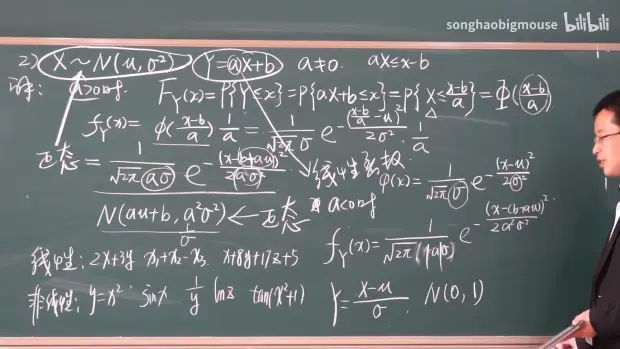 songhaobigmouse bilibili
2) X~N(u,σ²) Y=aX+b a≠0. aX≤x-b
解: a>0时 F_Y(x)=P{Y≤x}=P{aX+b≤x}=P{X≤(x-b)/a}=Φ((x-b)/a)
f_Y(x)=φ((x-b)/a)·1/a=1/(√2π σ) e^(-((x-b)/a-u)²/2σ²)·1/a
正态 =1/(√2π aσ) e^(-(x-(b+au))²/2(aσ)²) 线性系数 φ(x)=1/(√2π σ) e^(-(x-u)²/2σ²)
N(au+b, a²σ²)←正态 a<0时
σ f_Y(x)=1/(√2π(-aσ)) e^(-(x-(b+au))²/2a²σ²)
线性: 2x+3y x₁+x₂-x₃. x+8y+17z+5
非线性: y=x² sinx 1/y lnz tan(x²+1) Y=(X-u)/σ. N(0,1)